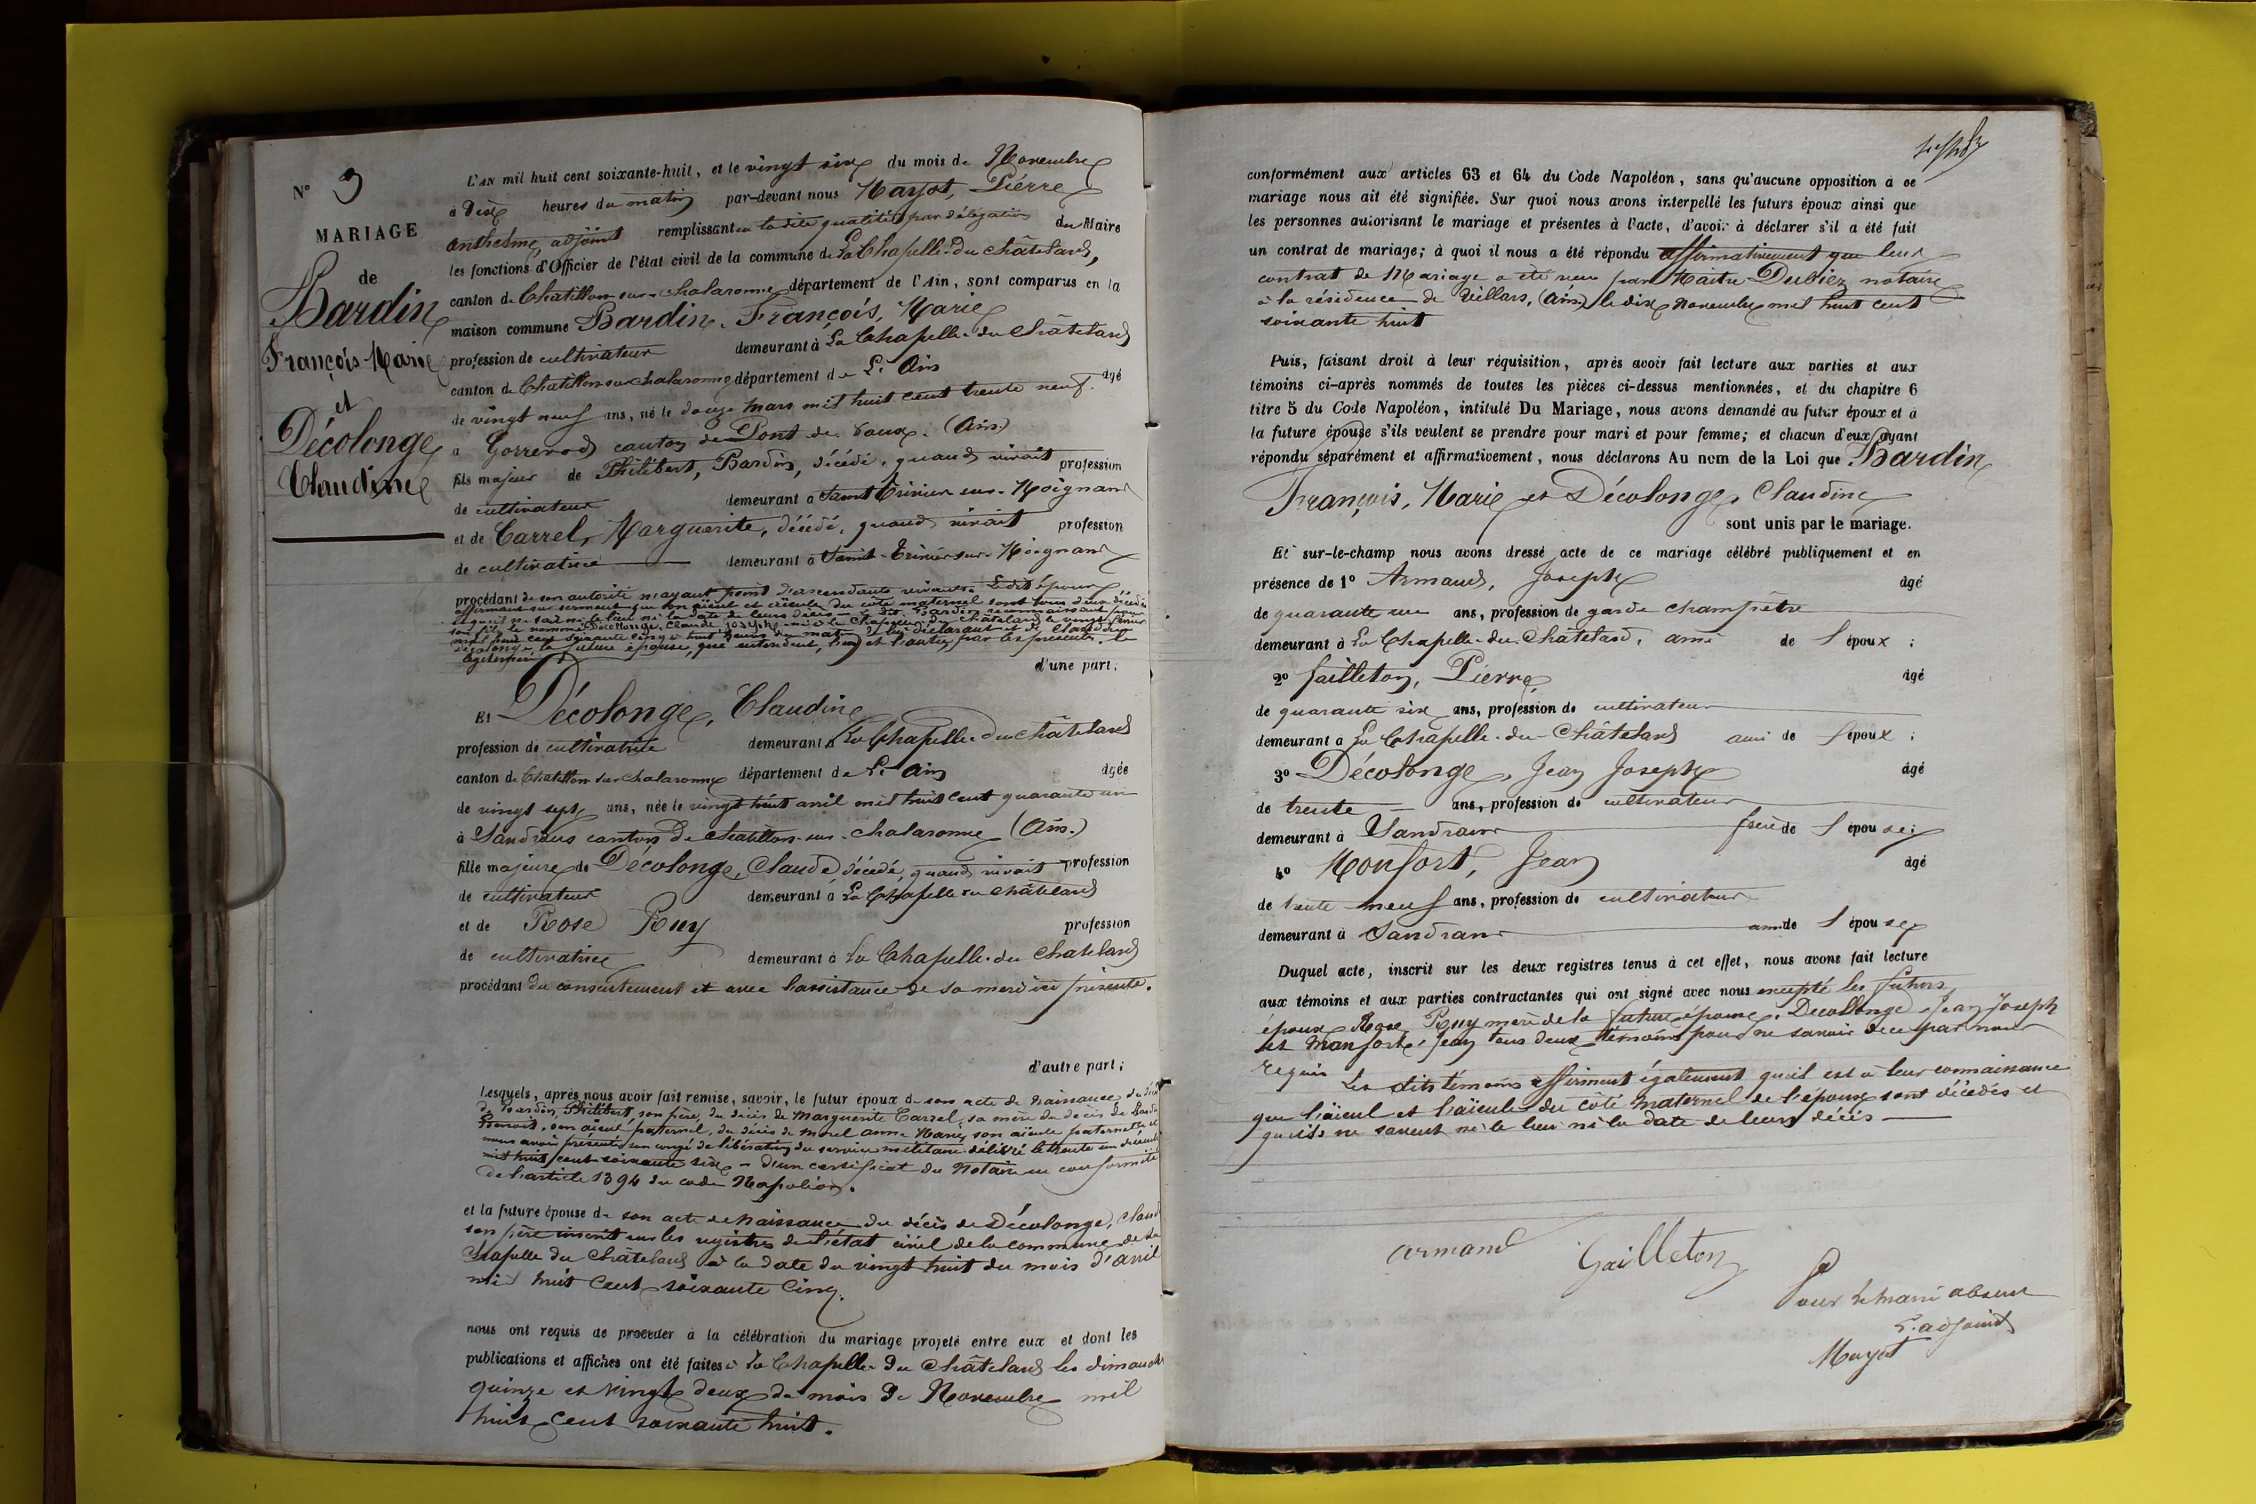 N° 9
MARIAGE
de
Bardin
François Marie
et
Décolonge
Claudine
L'AN mil huit cent soixante-huit, et le vingt six du mois de Novembre
à dix heures du matin par-devant nous Mayot, Pierre
anthelme, adjoint remplissant en la dite qualité par délégation du Maire
les fonctions d'Officier de l'état civil de la commune de La Chapelle-du-Châtelard,
canton de Chatillon-sur-Chalaronne département de l'Ain, sont comparus en la
maison commune Bardin, François, Marie
profession de cultivateur demeurant à La Chapelle-du Châtelard
canton de Chatillon sur chalaronne département de L'Ain âgé
de vingt neuf ans, né le douze mars mil huit cent trente neuf.
à Gorrevod canton de Pont de Vaux. (Ain)
fils majeur de Philibert, Bardin, décédé, quand vivait profession
de cultivateur demeurant à Saint Trivier sur-Moignand
et de Carrel, Marguerite, décédé, quand vivait profession
de cultivatrice demeurant à Saint-Trivier sur-Moignand
procédant de son autorité n'ayant point d'ascendants vivants. Le dit époux
affirmant sur serment que son aïeul et aïeule du côté maternel sont tous deux décédés
et qu'il ne sait ni le lieu ni la date de leurs décès - Le dit Bardin reconnaissant pour
son fils le nommé Décollonge, Claude Joseph né à la Chapelle du Châtelard le vingt
mil huit cent soixante cinq à huit heures du matin de lui déclarant et de Claudine
Décolonge, la future épouse, que entendent, l'un et l'autre, par les présentes le
légitimer
d'une part;
Et Décolonge, Claudine
profession de cultivatrice demeurant à La Chapelle-du châtelard
canton de Chatillon sur chalaronne département de L'Ain âgée
de vingt sept ans, née le vingt huit avril mil huit cent quarante un
à Sandrans canton de chatillon-sur-chalaronne (Ain.)
fille majeure de Décolonge, Claude décédé, quand vivait profession
de cultivateur demeurant à La Chapelle du châtelard
et de Rose Ruy profession
de cultivatrice demeurant à La Chapelle-du Chatelard
procédant du consentement et avec l'assistance de sa mère ici présente.
d'autre part;
Lesquels, après nous avoir fait remise, savoir, le futur époux de son acte de naissance, du décès
de Bardin, Philibert, son père, du décès de Marguerite Carrel, sa mère du décès de Bardin
Benoit, son aïeul paternel, du décès de Morel Anne Marie, son aïeule paternelle et
nous avoir présenté un congé de libération du service militaire délivré le trente un décembre
mil huit cent soixante six - d'un certificat du Notaire en conformité
de l'article 1394 du code Napoléon.
et la future épouse de son acte de naissance, du décès de Décolonge, Claude
son père inscrit sur les registres de l'état civil de la commune de La
Chapelle du Châtelard à la date du vingt huit du mois d'avril
mil huit cent soixante cinq.
nous ont requis de procéder à la célébration du mariage projeté entre eux et dont les
publications et affiches ont été faites à La Chapelle-du Châtelard les dimanches
quinze et vingt deux du mois de Novembre mil
huit cent soixante huit.
conformément aux articles 63 et 64 du Code Napoléon, sans qu'aucune opposition à ce
mariage nous ait été signifiée. Sur quoi nous avons interpellé les futurs époux ainsi que
les personnes autorisant le mariage et présentes à l'acte, d'avoir à déclarer s'il a été fait
un contrat de mariage; à quoi il nous a été répondu affirmativement que leur
contrat de Mariage a été reçu par Maître Dubiez, notaire
à la résidence de Villars, (Ain) le dix Novembre mil huit cent
soixante huit
Puis, faisant droit à leur réquisition, après avoir fait lecture aux parties et aux
témoins ci-après nommés de toutes les pièces ci-dessus mentionnées, et du chapitre 6
titre 5 du Code Napoléon, intitulé Du Mariage, nous avons demandé au futur époux et à
la future épouse s'ils veulent se prendre pour mari et pour femme; et chacun d'eux ayant
répondu séparément et affirmativement, nous déclarons Au nom de la Loi que Bardin
François, Marie et Décolonge, Claudine
sont unis par le mariage.
Et sur-le-champ nous avons dressé acte de ce mariage célébré publiquement et en
présence de 1° Armand, Joseph âgé
de quarante un ans, profession de garde champêtre
demeurant à La Chapelle-du-Châtelard, ami de l'époux;
2° Gailleton, Pierre, âgé
de quarante six ans, profession de cultivateur
demeurant à La Chapelle-du-Châtelard ami de l'époux;
3° Décolonge, Jean Joseph âgé
de trente ans, profession de cultivateur
demeurant à Sandrans frère de l'épouse;
4° Monfort, Jean âgé
de trente neuf ans, profession de cultivateur
demeurant à Sandrans ami de l'épouse
Duquel acte, inscrit sur les deux registres tenus à cet effet, nous avons fait lecture
aux témoins et aux parties contractantes qui ont signé avec nous excepté les futurs
époux, Rose Ruy mère de la future épouse, Decollonge Jean Joseph
et Monfort, Jean tous deux témoins pour ne savoir de ce par nous
requis Les dits témoins affirment également qu'il est à leur connaissance
que l'aïeul et l'aïeule du côté maternel de l'époux sont décédés et
qu'ils ne savent ni le lieu ni la date de leurs décès
armand Gailleton
Pour le maire absent
L'adjoint
Mayot